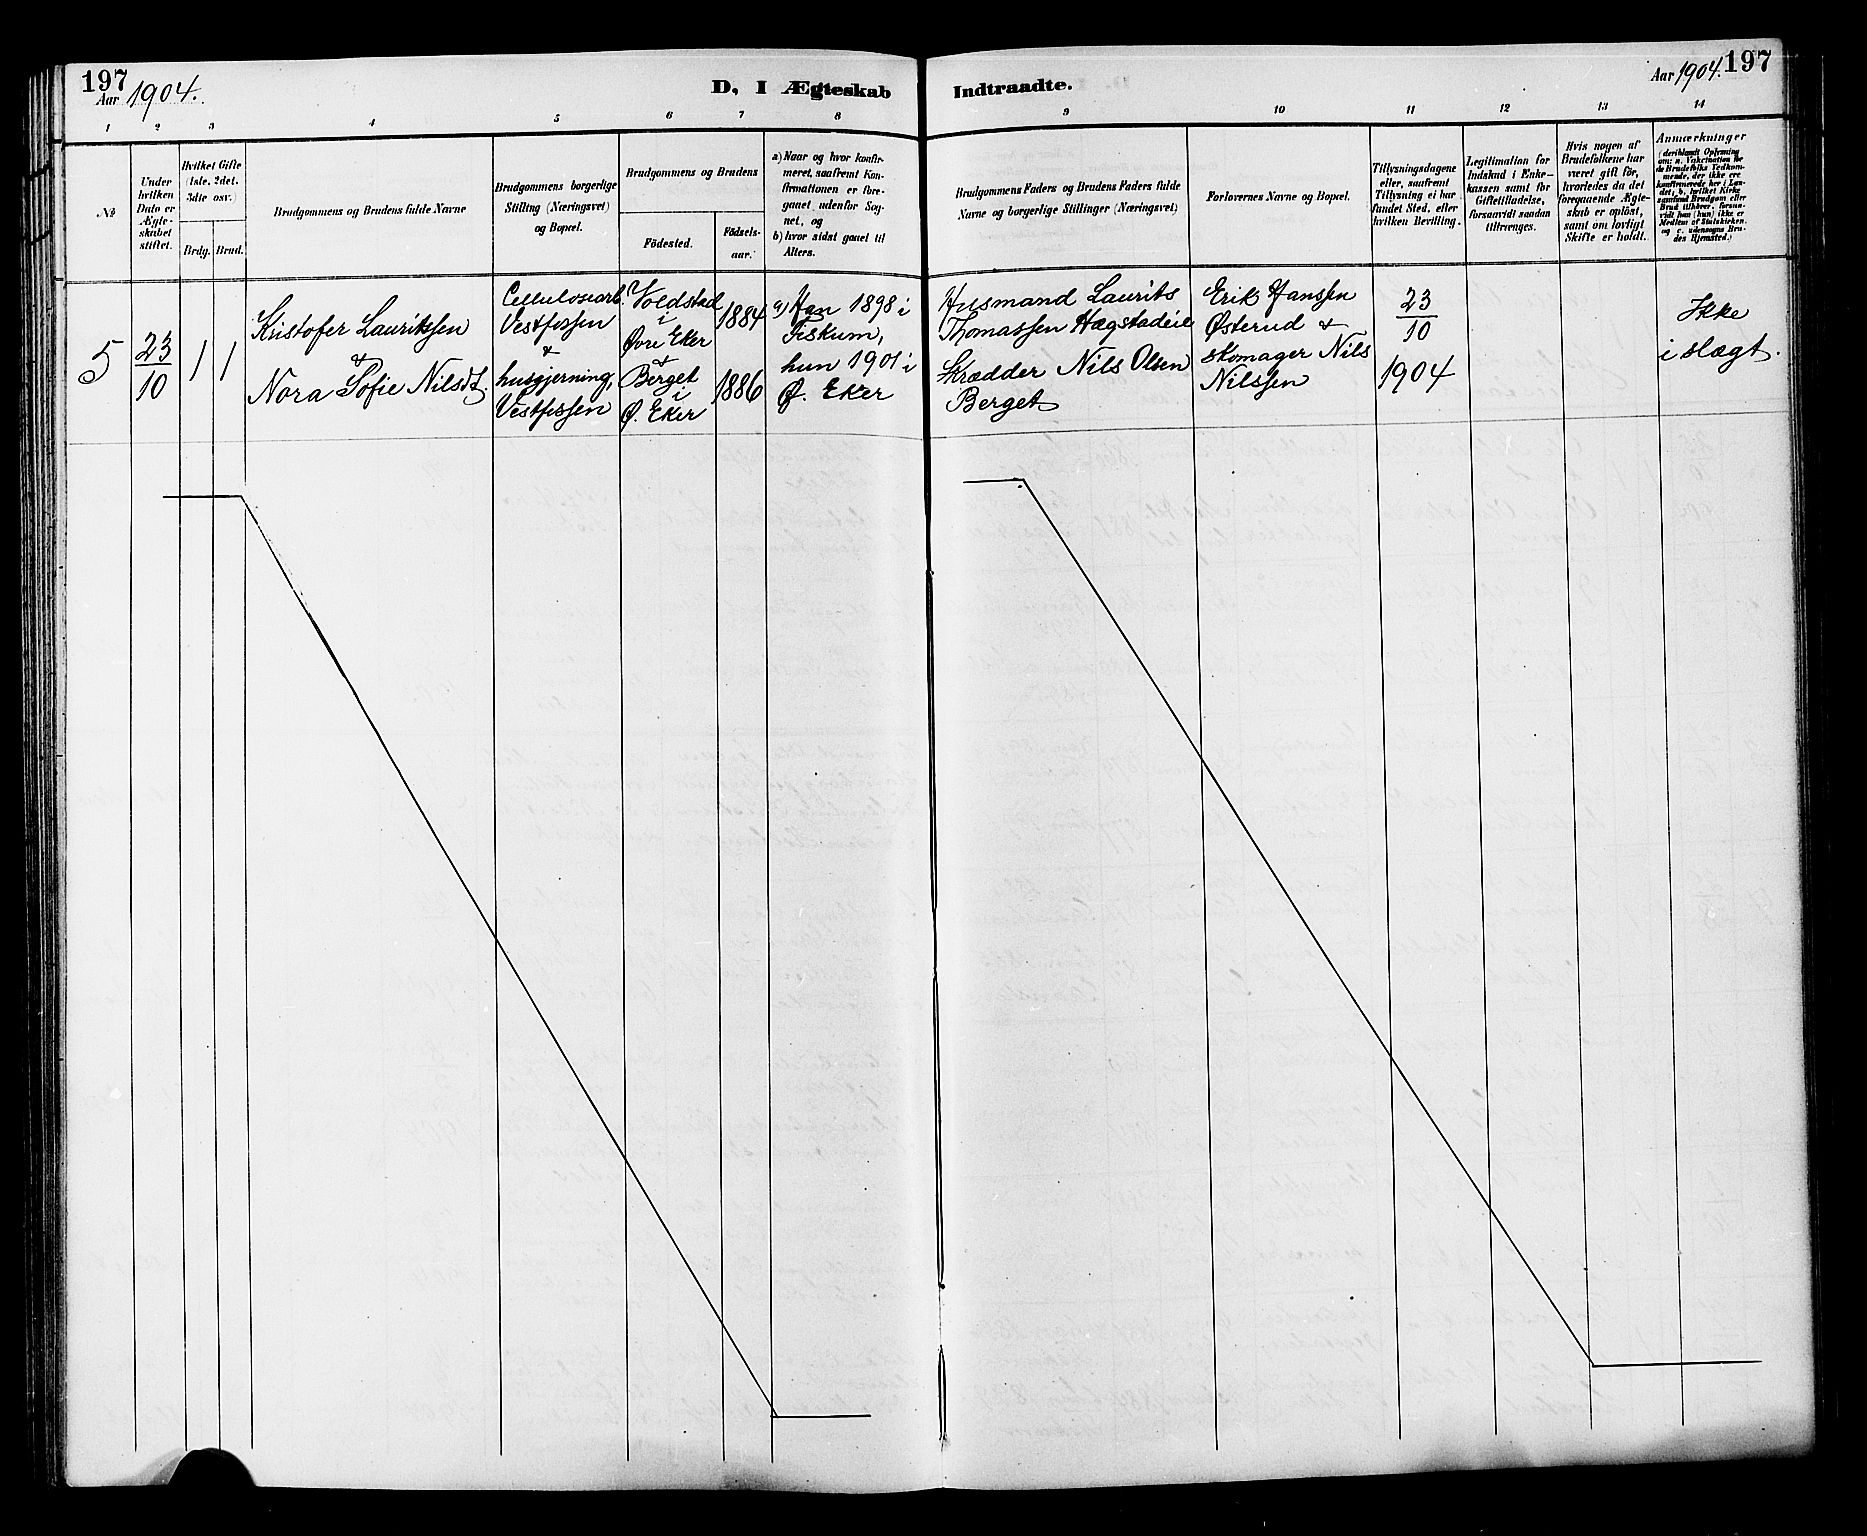 197
Aar 1904.
D, I Ægteskab
Indtraadte.
Aar 1904. 197
1 2 3 4 5 6 7 8 9 10 11 12 13 14
№
Under
hvilken
Dato er
Ægte-
skabet
stiftet.
Hvilket Gifte
(1ste, 2det,
3die osv.)
Brdg. Brud.
Brudgommens og Brudens fulde Navne
Brudgommens borgerlige
Stilling (Næringsvei)
og Bopæl.
Brudgommens og Brudens
Födested.
Födsels-
aar.
a) Naar og hvor konfir-
meret, saafremt Kon-
firmationen er fore-
gaaet udenfor Sog-
net, og
b) hvor sidst gaaet til
Alters.
Brudgommens Faders og Brudens Faders fulde
Navne og borgerlige Stillinger (Næringsvei)
Forlovernes Navne og Bopæl.
Tillysningsdagene
eller, saafremt
Tillysning ei har
fundet Sted, efter
hvilken Bevilling.
Legitimation for
Indskud i Enke-
kassen samt for
Giftetilladelse,
forsaavidt saadan
tiltrænges.
Hvis nogen af
Brudefolkene har
været gift før,
hvorledes da det
foregaaende Ægte-
skab er oplöst,
samt om lovligt
Skifte er holdt.
Anmærkninger
(deriblandt Oplysning
om: a. Vakcination for
de Brudefolks Vedkom-
mende, der ikke ere
konfirmerede her i Lan-
det, b. hvilket Kirke
samfund Brudgom eller
Brud tilhører, forsaa-
vidt han (hun) ikke er
Medlem af Statskirken,
og c. udensogns Bru-
des Hjemsted.)
5
23
10
1 1
Kristofer Lauritssen
&
Nora Sofie Nilsdt.
Cellulosearb.
Vestfossen
&
husgjerning,
Vestfossen
Voldstad
i
Øvre Eker
&
Berget
i
Ø. Eker
1884
1886
a) Han 1898 i
Fiskum,
hun 1901 i
Ø. Eker
Husmand Laurits
Thomassen Hægstadeie
Skrædder Nils Olsen
Berget
Erik Hanssen
Østerud &
skomager Nils
Nilssen
23
10
1904
Ikke
i slægt.